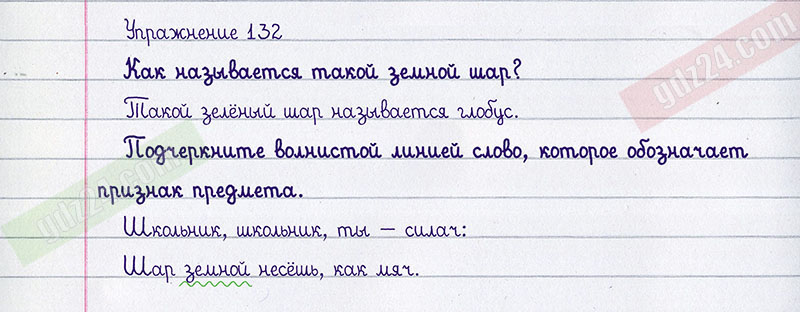 Упражнение 132
Как называется такой земной шар?
Такой зелёный шар называется глобус.
Подчеркните волнистой линией слово, которое обозначает
признак предмета.
Школьник, школьник, ты – силач:
Шар земной несёшь, как мяч.
gdz24.com
gdz24.com